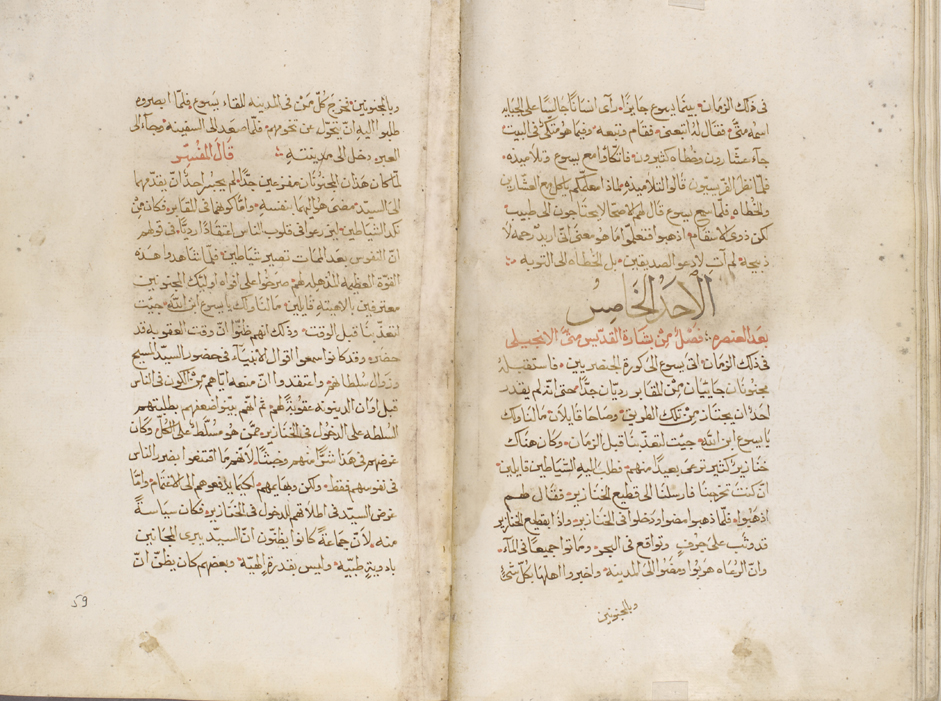 فى ذلك الزمان بينما يسوع جايزا رآى انسانًا جالسًا على الجبايه
اسمه متى فقال له اتبعنى فقام فتبعه وفيما هو متكى فى البيت
جآء عشارون وخطاه كثيرون فاتكاوا مع يسوع وتلاميذه
فلما نظر الفريسيون قالوا لتلاميذه لماذا معلمكم ياكل مع العشارين
والخطاه فلما سمع يسوع قال لهم الاصحا لا يحتاجون الى طبيب
لكن ذوى الاسقام اذهبوا فتعلموا ما هو معنى انى اريد رحمه لا
ذبيحة لم آت لادعو الصديقين بل الخطاه الى التوبه
الاحد الخامس
بعد العنصره فصل من بشارة القديس متى الانجيلى
فى ذلك الزمان اتى يسوع الى كورة الجرجسيين فاستقبله
مجنونان جاييان من المقابر رديان جدًا حتى انه لم يقدر
احد ان يجتاز من تلك الطريق وصاحا قايلان ما لنا ولك
يا يسوع ابن الله جيت لتعذبنا قبل الزمان وكان هناك
خنازير كثير ترعى بعيدًا منهم فطلب اليه الشياطين قايلين
ان كنت تخرجنا فارسلنا الى قطيع الخنازير فقال لهم
اذهبوا فلما ذهبوا مضوا ودخلوا فى الخنازير واذا بقطيع الخنازير
قد وثب على جرف وتواقع فى البحر وماتوا جميعًا فى المآء
وان الرعاه هربوا ومضوا الى المدينه واخبروا اهلها بكل شى
وبالمجنونين
وبالمجنونين فخرج كل من فى المدينه للقاء يسوع فلما ابصروه
طلبوا اليه ان يتحول عن تخومهم فلما صعد الى السفينه وجآء الى
العبر ودخل الى مدينته قال المفسر
لما كان هذان المجنونان مفزعين جدًا لم يجسر احد ان يقدمهما
الى السيد فمضى هو اليهما بنفسه واما كونهما فى المقابر فكان من
نكد الشياطين ليزرعوا فى قلوب الناس اعتقادًا رديًا فى قولهم
ان النفوس بعد الممات تصير شياطين فلما شاهدوا هذه
القوة العظيمه المذهله لهم صرخوا على افواه اوليك المجنونين
معترفين بالاهيته قايلين ما لنا ولك يا يسوع ابن الله جيت
لتعذبنا قبل الوقت وذلك انهم ظنوا ان وقت العقوبه قد
حضر وقد كانوا سمعوا اقوال الانبياء فى حضور السيد المسيح
وزوال سلطانهم واعتقدوا ان منعه اياهم من الكون فى الناس
قبل اوان الدينونه عقوبة لهم ثم انهم بتواضعهم بطلبتهم
السلطه على الدخول فى الخنازير ممن هو مسلط على الكل وكان
غرضهم فى هذا شرًا منهم وخبثًا لانهم ما اقتنعوا بضرر الناس
فى نفوسهم فقط ولكن وبهايمهم لكيما يدفعوهم الى الانتقام واما
غرض السيد فى اطلاقهم للدخول فى الخنازير فكان سياسة
منه لان جماعة كانوا يظنون ان السيد يبرى المجانين
بادوية طبيه وليس بقدرة الهية وبعضهم كان يظن ان
59